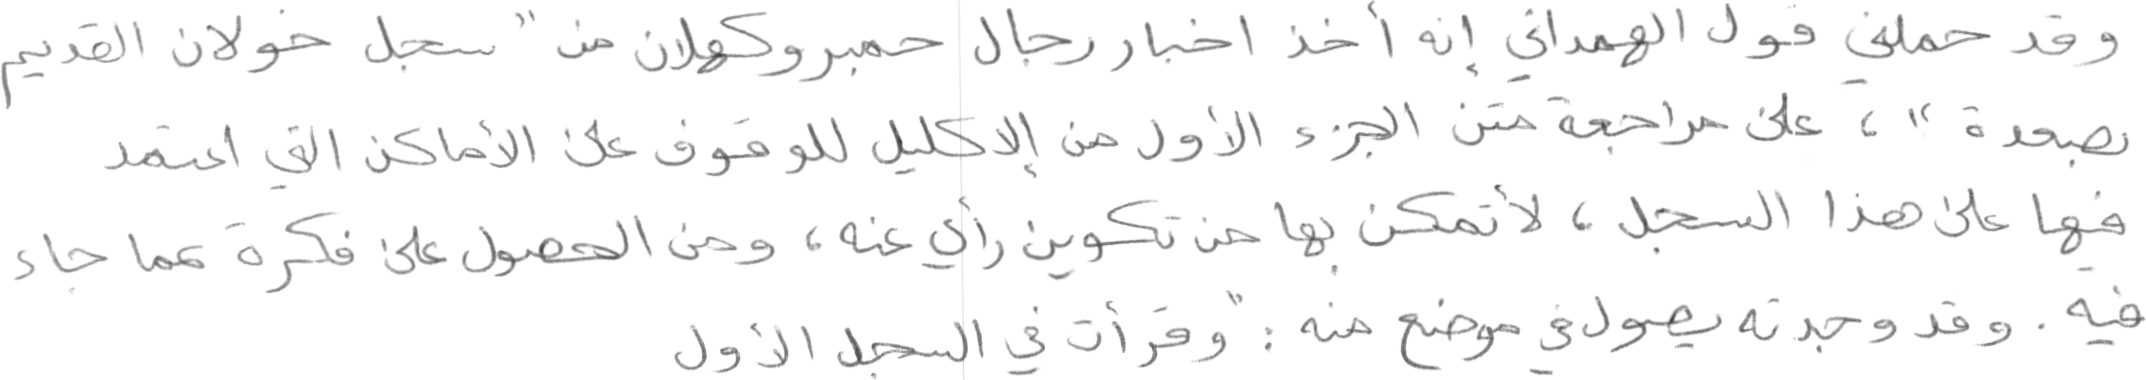 وقد حملني قول الهمداني إنه أخذ اخبار رجال حمير وكهلان من "سجل خولان القديم
بصعدة"، على مراجعة متن الجزء الأول من إلاكليل للوقوف على الأماكن التي اعتمد
فيها على هذا السجل، لأتمكن بها من تكوين رأي عنه، ومن الحصول على فكرة عما جاء
فيه. وقد وجدته يقول في موضع منه: "وقرأت في السجل الأول